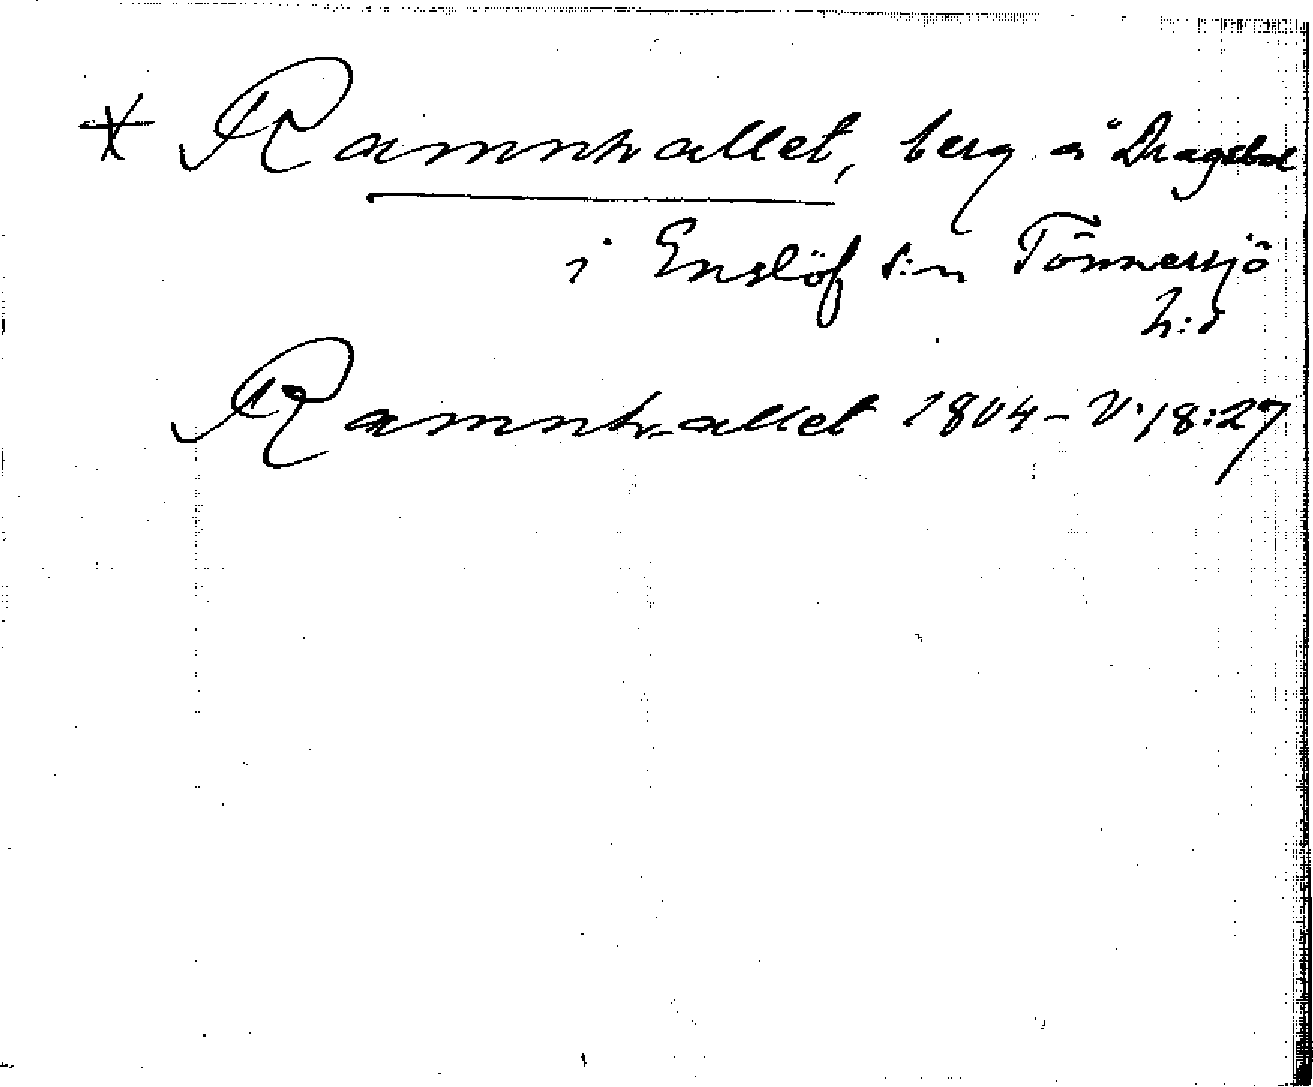 * Ramnhallet, berg å Dragsbol
i Enslöf s:n Tönnersjö
h:d
Ramnhallet 1804 - V. 18:27